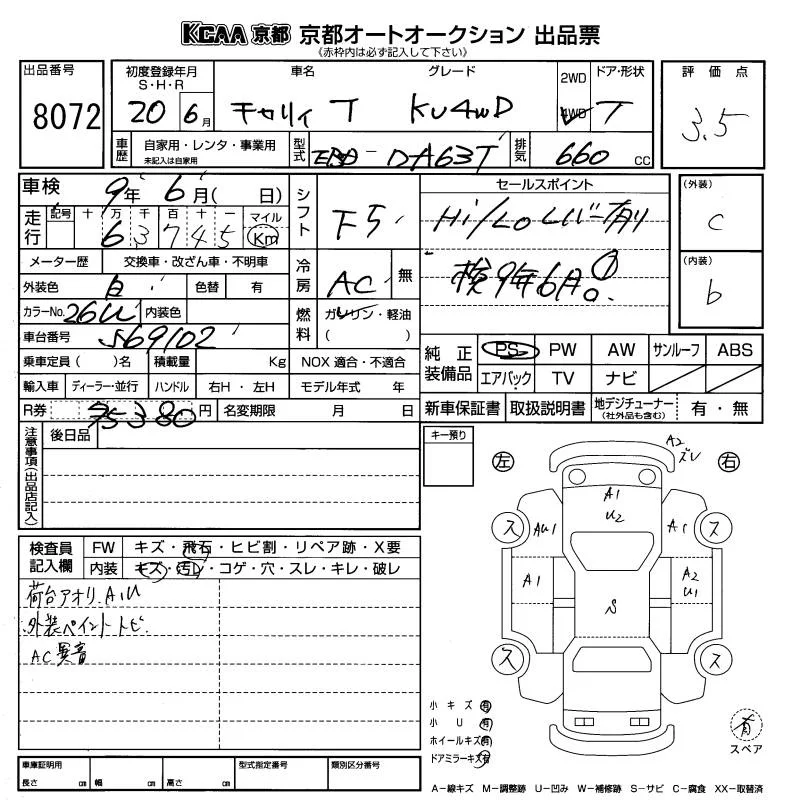 KCAA 京都 京都オートオークション 出品票
《赤枠内は必ず記入して下さい》
出品番号
8072
初度登録年月
S・H・R
20 6月
車名
キャリィ T
グレード
KU4WD
2WD
4WD
ドア・形状
T
評価点
3.5
車歴
自家用・レンタ・事業用
未記入は自家用
型式
EBD-DA63T
排気
660 CC
車検 9年 6月( 日)
走行
記号 十 万 千 百 十 一 マイル
6 3 7 4 5 Km
メーター歴 交換車・改ざん車・不明車
外装色 白 色替 有
カラーNo. 26U 内装色
車台番号 569102
乗車定員 ( )名 積載量 Kg
輸入車 ディーラー・並行 ハンドル 右H・左H
R券 5380円 名変期限 月 日
シフト F5
冷房 AC 無
燃料 ガソリン・軽油
( )
NOX 適合・不適合
モデル年式 年
セールスポイント
Hi/Loレバー有り
検9年6月!
(外装)
C
(内装)
b
純正装備品
PS PW AW サンルーフ ABS
エアバック TV ナビ
新車保証書 取扱説明書 地デジチューナー
(社外品も含む) 有・無
注意事項(出品店記入)
後日品
キー預り
左
右
A2
ズレ
A1
U2
AU1
A1
A1
A2
U1
S
ス
ス
ス
ス
検査員記入欄
FW キズ・飛石・ヒビ割・リペア跡・X要
内装 キズ・汚レ・コゲ・穴・スレ・キレ・破レ
荷台アオリ.AU
外装ペイントトビ.
AC異音
小キズ 有
小U 有
ホイールキズ 有
ドアミラーキズ 有
有
スペア
車庫証明用
長さ cm 幅 cm 高さ cm
型式指定番号
類別区分番号
A−線キズ M−調整跡 U−凹み W−補修跡 S−サビ C−腐食 XX−取替済